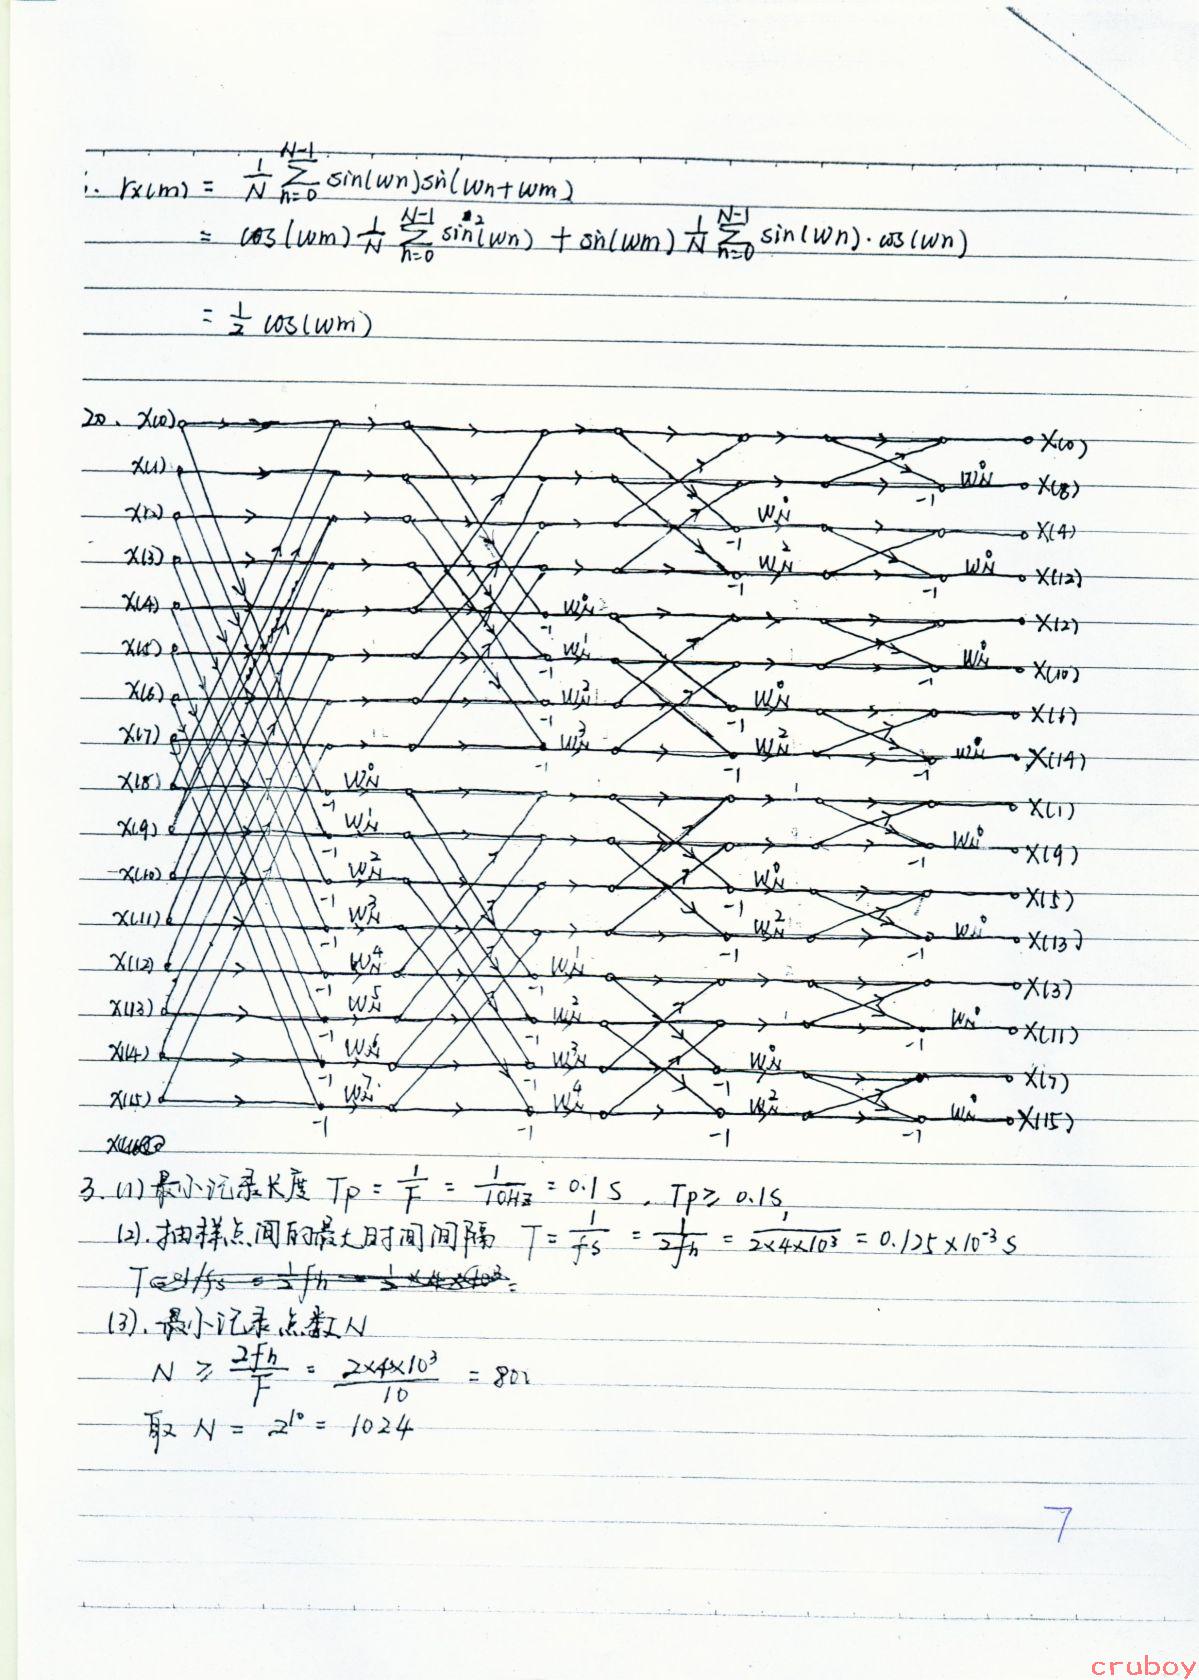 ∴ rx(m) = 1/N Σ_{n=0}^{N-1} sin(wn)sin(wn+wm)
= cos(wm) 1/N Σ_{n=0}^{N-1} sin²(wn) + sin(wm) 1/N Σ_{n=0}^{N-1} sin(wn)·cos(wn)
= 1/2 cos(wm)
20. x(0) X(0)
x(1) W_N^0 X(8)
-1
x(2) W_N^0 X(4)
-1
x(3) W_N^2 W_N^0 X(12)
-1 -1
x(4) W_N^0 X(2)
-1
x(5) W_N^1 W_N^0 X(10)
-1 -1
x(6) W_N^2 W_N^0 X(6)
-1 -1
x(7) W_N^3 W_N^2 W_N^0 X(14)
-1 -1 -1
x(8) W_N^0 X(1)
-1
x(9) W_N^1 W_N^0 X(9)
-1 -1
x(10) W_N^2 W_N^0 X(5)
-1 -1
x(11) W_N^3 W_N^2 W_N^0 X(13)
-1 -1 -1
x(12) W_N^4 W_N^1 X(3)
-1 -1
x(13) W_N^5 W_N^2 W_N^0 X(11)
-1 -1 -1
x(14) W_N^6 W_N^3 W_N^0 X(7)
-1 -1 -1
x(15) W_N^7 W_N^4 W_N^2 W_N^0 X(15)
-1 -1 -1 -1
3. (1) 最小记录长度 Tp = 1/F = 1/10Hz = 0.1 s , Tp ≥ 0.1s
(2). 抽样点间的最大时间间隔 T = 1/fs = 1/2fh = 1/2×4×10³ = 0.125×10⁻³ s
(3). 最小记录点数N
N ≥ 2fh/F = 2×4×10³/10 = 80
取 N = 2¹⁰ = 1024
7
cruboy